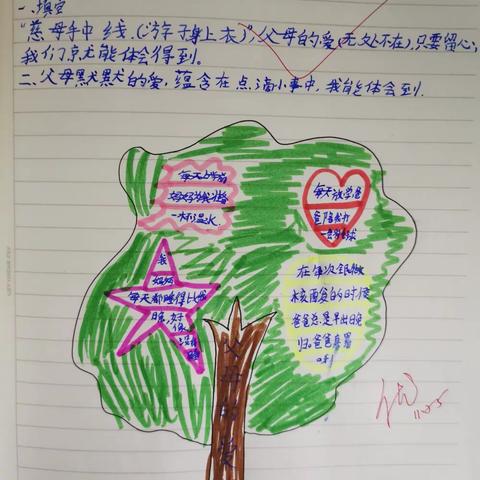 一、填空
“慈母手中线,(“游子身上衣)”,父母的爱(无处不在),只要留心,
我们就能体会得到。
二、父母默默的爱,蕴含在点滴小事中,我能体会到.
每天上学前
妈妈给我准备
一杯温水.
每天放学爸
爸陪我打
一会羽毛球
我
妈妈
每天都睡得比我
晚,好
像
没有
在每次全员核酸
核酸的时候
爸爸总是早出晚
归。爸爸辛苦
了!
父母的爱
优
11.25